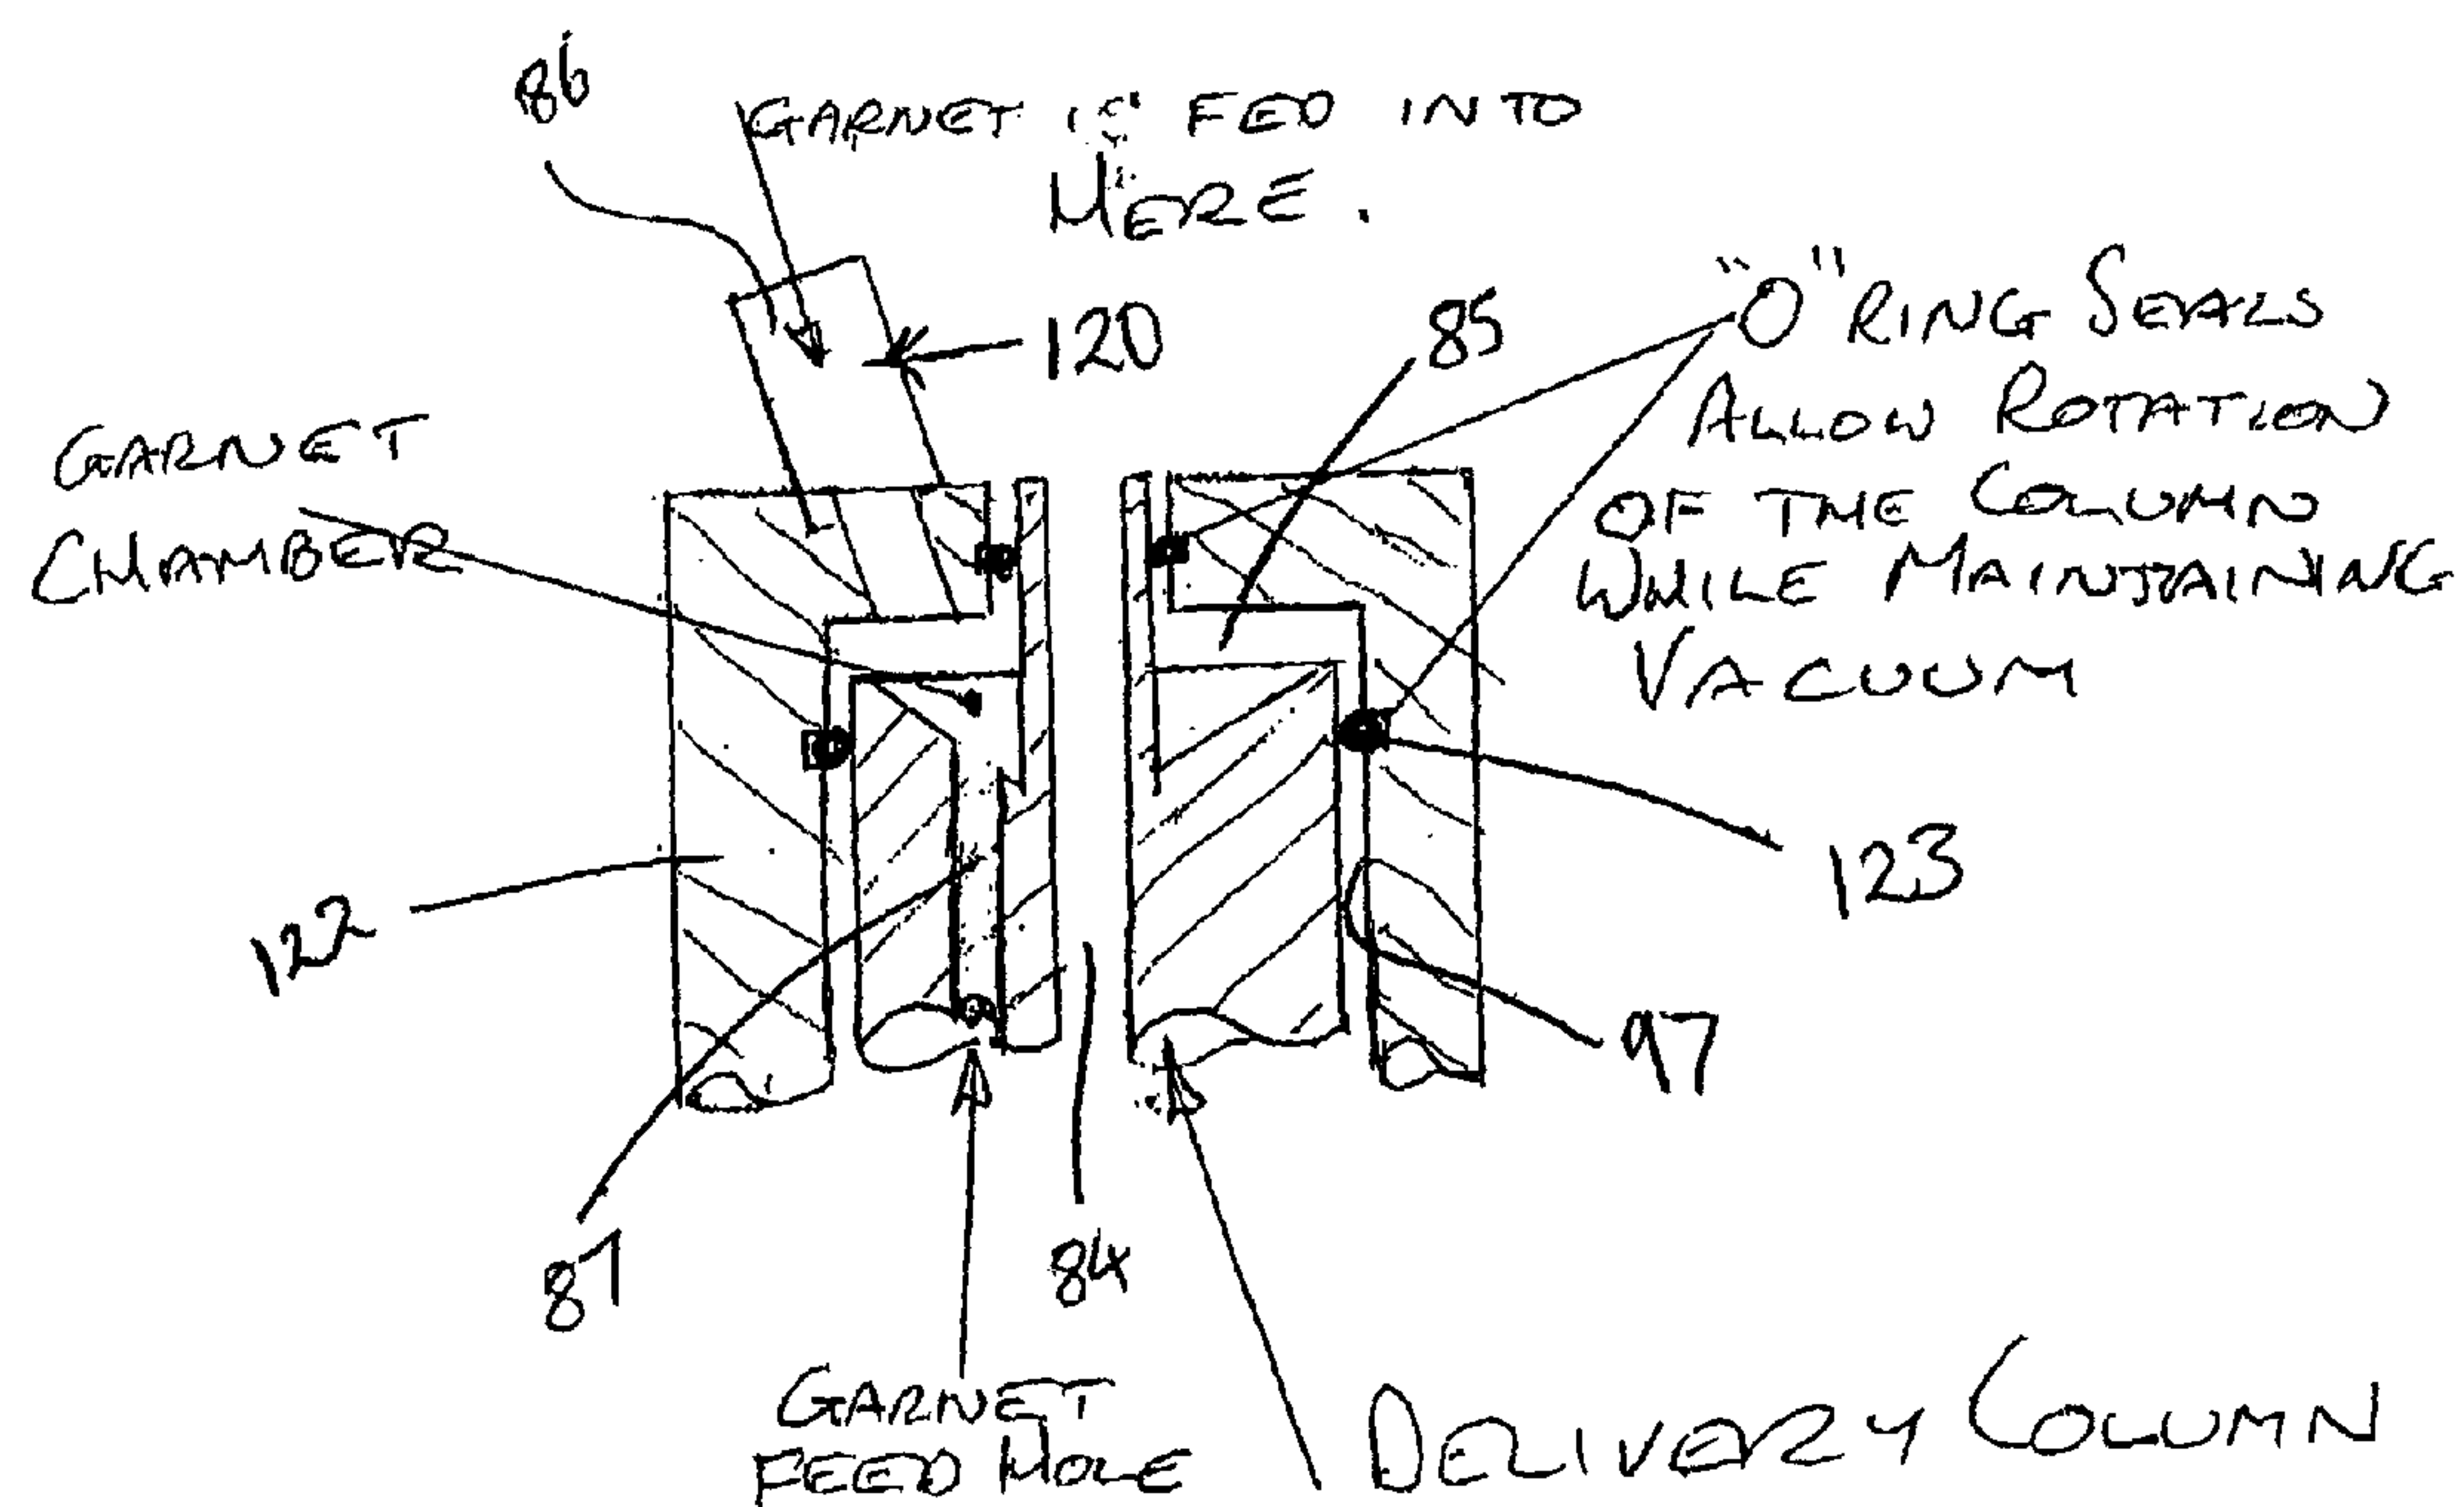 86
GARNET IS FED INTO
HERE.
120
85
"O" RING SEALS
ALLOW ROTATION
OF THE COLUMN
WHILE MAINTAINING
VACUUM
GARNET
CHAMBER
122
123
97
87
84
GARNET
FEED HOLE
DELIVERY COLUMN